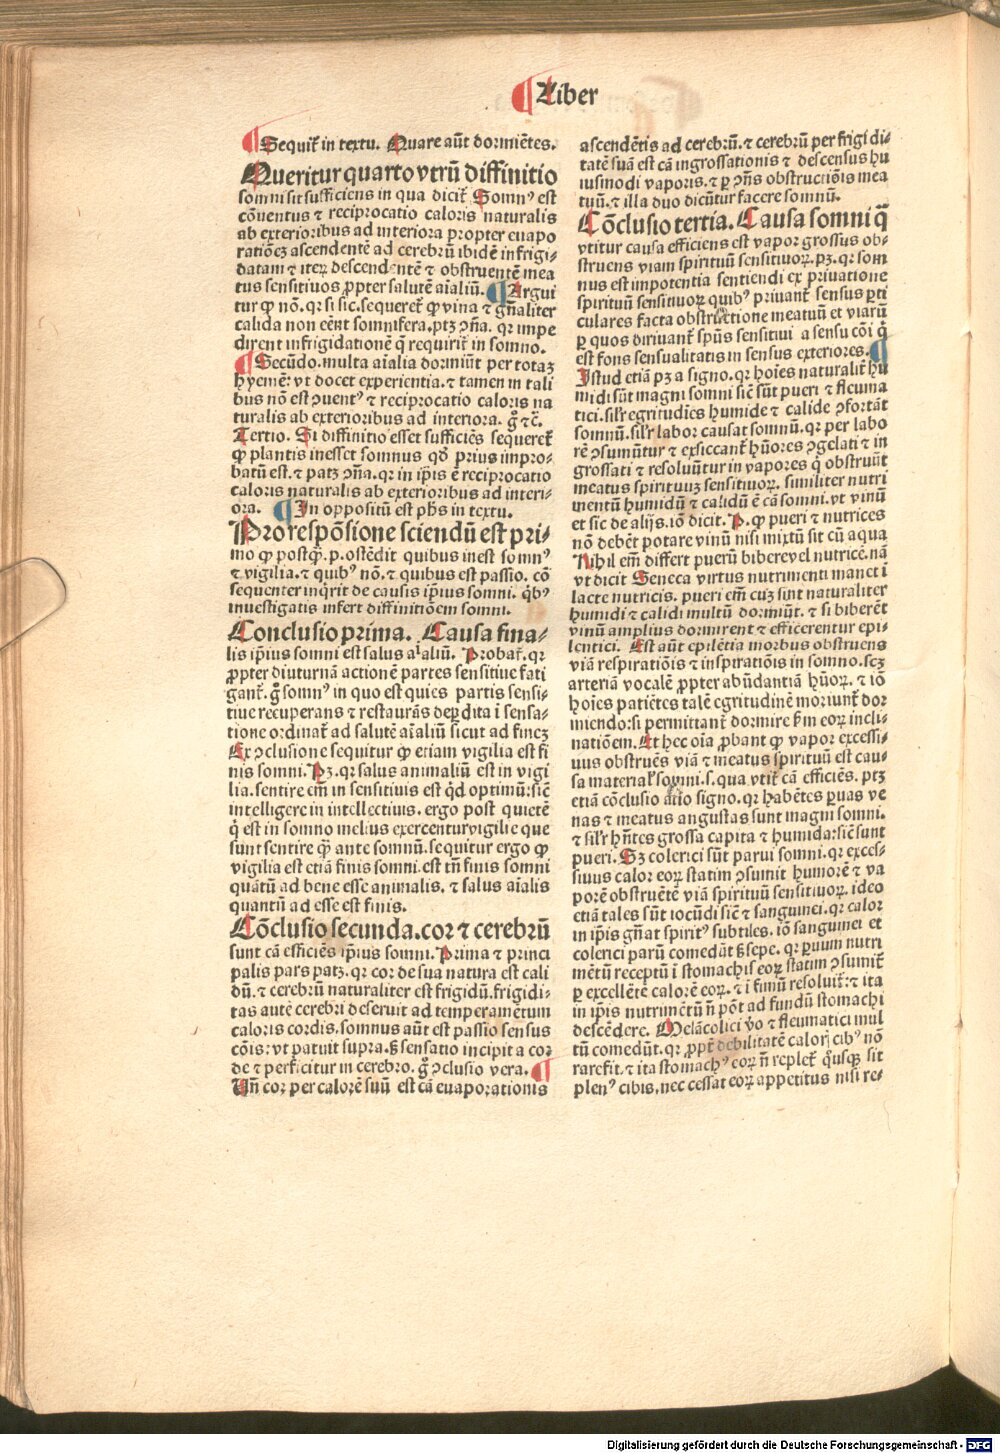 ¶ Liber
¶ Sequit᷑ in textu. Quare aūt dormiētes.
Queritur quarto vtrū diffinitio
somni sit sufficiens in qua dicit᷑ Somnꝰ est
cōuentus ⁊ reciprocatio caloris naturalis
ab exterioribus ad interiora propter euapo
rationē ascendentē ad cerebrū ibidē infrigi⸗
datam ⁊ iterꝝ descendentē ⁊ obstruentē mea
tus sensitiuos ꝓpter salutē aīaliū. ¶ Argui
tur ꝙ nō. qr si sic. sequeret᷑ ꝙ vina ⁊ gn̄aliter
calida non eēnt somnifera. ptꝫ ꝯña. qr impe
dirent infrigidationē ꝗ requirit᷑ in somno.
¶ Secūdo. multa aīalia dormiūt per totaꝫ
hyemē: vt docet experientia. ⁊ tamen in tali
bus nō est ꝯuentꝰ ⁊ reciprocatio caloris na
turalis ab exterioribus ad interiora. g̊ ⁊c̄.
Tertio. Si diffinitio esset sufficiēs sequeret᷑
ꝙ plantis inesset somnus qd̄ prius impro⸗
batū est. ⁊ patꝫ ꝯña. qr in ip̄is ē reciprocatio
caloris naturalis ab exterioribus ad interi⸗
ora. ¶ In oppositū est ph̄s in textu.
Pro respōsione sciendū est pri⸗
mo ꝙ postq̄ꝫ. p. ostēdit quibus inest somnꝰ
⁊ vigilia. ⁊ quibꝰ nō. ⁊ quibus est passio. cō
sequenter inq̄rit de causis ip̄ius somni. q̄bꝰ
inuestigatis infert diffinitiōem somni.
Conclusio prima. Causa fina⸗
lis ip̄ius somni est salus aīaliū. Probat᷑. qr
ꝓpter diuturnā actionē partes sensitiue fati
gant᷑. g̊ somnꝰ in quo est quies partis sensi⸗
tiue recuperans ⁊ restaurās deꝑdita ī sensa⸗
tione ordinat᷑ ad salutē aīaliū sicut ad fineꝫ
Ex ꝯclusione sequitur ꝙ etiam vigilia est fi
nis somni. Pꝫ. qr salus animaliū est in vigi
lia. sentire em̄ in sensitiuis est qd̄ optimū: sic̄
intelligere in intellectiuis. ergo post quietē
q̄ est in somno melius exercentur vigilie que
sunt sentire q̄ꝫ ante somnū. sequitur ergo ꝙ
vigilia est etiā finis somni. est tn̄ finis somni
quātū ad bene esse animalis. ⁊ salus aīalis
quantū ad esse est finis.
Cōclusio secunda. cor ⁊ cerebrū
sunt cā efficiēs ip̄ius somni. Prima ⁊ princi
palis pars patꝫ. qr cor de sua natura est cali
dū. ⁊ cerebrū naturaliter est frigidū. frigidi⸗
tas autē cerebri deseruit ad temperamētum
caloris cordis. somnus aūt est passio sensus
cōis: vt patuit supra. ꝫ sensatio incipit a cor
de ⁊ perficitur in cerebro. g̊ ꝯclusio vera. ¶
Vn̄ cor per calorē suū est cā euaporationis
ascendētis ad cerebrū. ⁊ cerebrū per frigidi⸗
tatē suā est cā ingrossationis ⁊ descensus hu
iusmodi vaporis. ⁊ ꝑ ꝯn̄s obstructiōis mea
tuū. ⁊ illa duo dicūtur facere somnū.
Cōclusio tertia. Causa somni q̄
vtitur causa efficiens est vapor grossus ob⸗
struens viam spirituū sensitiuoꝝ. pꝫ. qr som
nus est impotentia sentiendi ex priuatione
spirituū sensitiuoꝝ quibꝰ priuant᷑ sensus ꝑti
culares facta obstructione meatuū et viarū
ꝑ quos diriuant᷑ spūs sensitiui a sensu cōi q̇
est fons sensualitatis in sensus exteriores. ¶
Istud etiā pꝫ a signo. qr hoīes naturalit᷑ hu
midi sūt magni somni sic̄ sūt pueri ⁊ fleuma
tici. silr̄ egritudīes humide ⁊ calide ꝯfortāt
somnū. silr̄ labor causat somnū. qr per labo
rē ꝯsumūtur ⁊ exsiccant᷑ hūores ꝯgelati ⁊ in
grossati ⁊ resoluūtur in vapores q̇ obstruūt
meatus spirituuꝫ sensitiuoꝝ. similiter nutri
mentū humidū ⁊ calidū ē cā somni. vt vinū
et sic de alijs. iō dicit. P. ꝙ pueri ⁊ nutrices
nō debēt potare vinū nisi mixtū sit cū aqua
Nihil em̄ differt puerū bibere vel nutricē. nā
vt dicit Seneca virtus nutrimenti manet ī
lacte nutricis. pueri em̄ cuꝫ sint naturaliter
humidi ⁊ calidi multū dormiūt. ⁊ si biberēt
vinū amplius dormirent ⁊ efficerentur epi⸗
lentici. Est aūt epilētia morbus obstruens
viā respiratiōis ⁊ inspiratiōis in somno. scꝫ
arteriā vocalē ꝓpter abūdantiā hūoꝝ. ⁊ iō
hoīes patiētes talē egritudinē moriunt᷑ dor
miendo: si permittant᷑ dormire ẜm eoꝝ incli⸗
natiōem. Et hec oīa ꝓbant ꝙ vapor excessi⸗
uus obstruēs viā ⁊ meatus spirituū est cau⸗
sa materialꝭ somni. s. qua vtit᷑ cā efficiēs. ptꝫ
etiā cōclusio alio signo. qr habētes ꝑuas ve
nas ⁊ meatus angustas sunt magni somni.
⁊ silr̄ hn̄tes grossa capita ⁊ humida: sic̄ sunt
pueri. Sꝫ colerici sūt parui somni. qr exces⸗
siuus calor eoꝝ statim ꝯsumit humorē ⁊ va
porē obstruētē viā spirituū sensitiuoꝝ. ideo
etiā tales sūt iocūdi sic̄ ⁊ sanguinei. qr calor
in ip̄is gn̄at spiritꝰ subtiles. iō sanguinei et
colerici parū comedūt ꝫ sepe. qr ꝑuum nutri
mētū receptū ī stomachis eoꝝ statim ꝯsumit᷑
ꝑ excellētē calorē eoꝝ. ⁊ ī fumū resoluit᷑: ⁊ ita
in ip̄is nutrimētū n̄ pōt ad fundū stomachi
descēdere. Melācolici v̊o ⁊ fleumatici mul
tū comedūt. qr ꝓpt᷑ debilitatē caloris cibꝰ nō
rarefit. ⁊ ita stomachꝰ eoꝝ n̄ replet᷑ q̇usqꝫ sit
plenꝰ cibis. nec cessat eoꝝ appetitus nisi re⸗
Digitalisierung gefördert durch die Deutsche Forschungsgemeinschaft - DFG